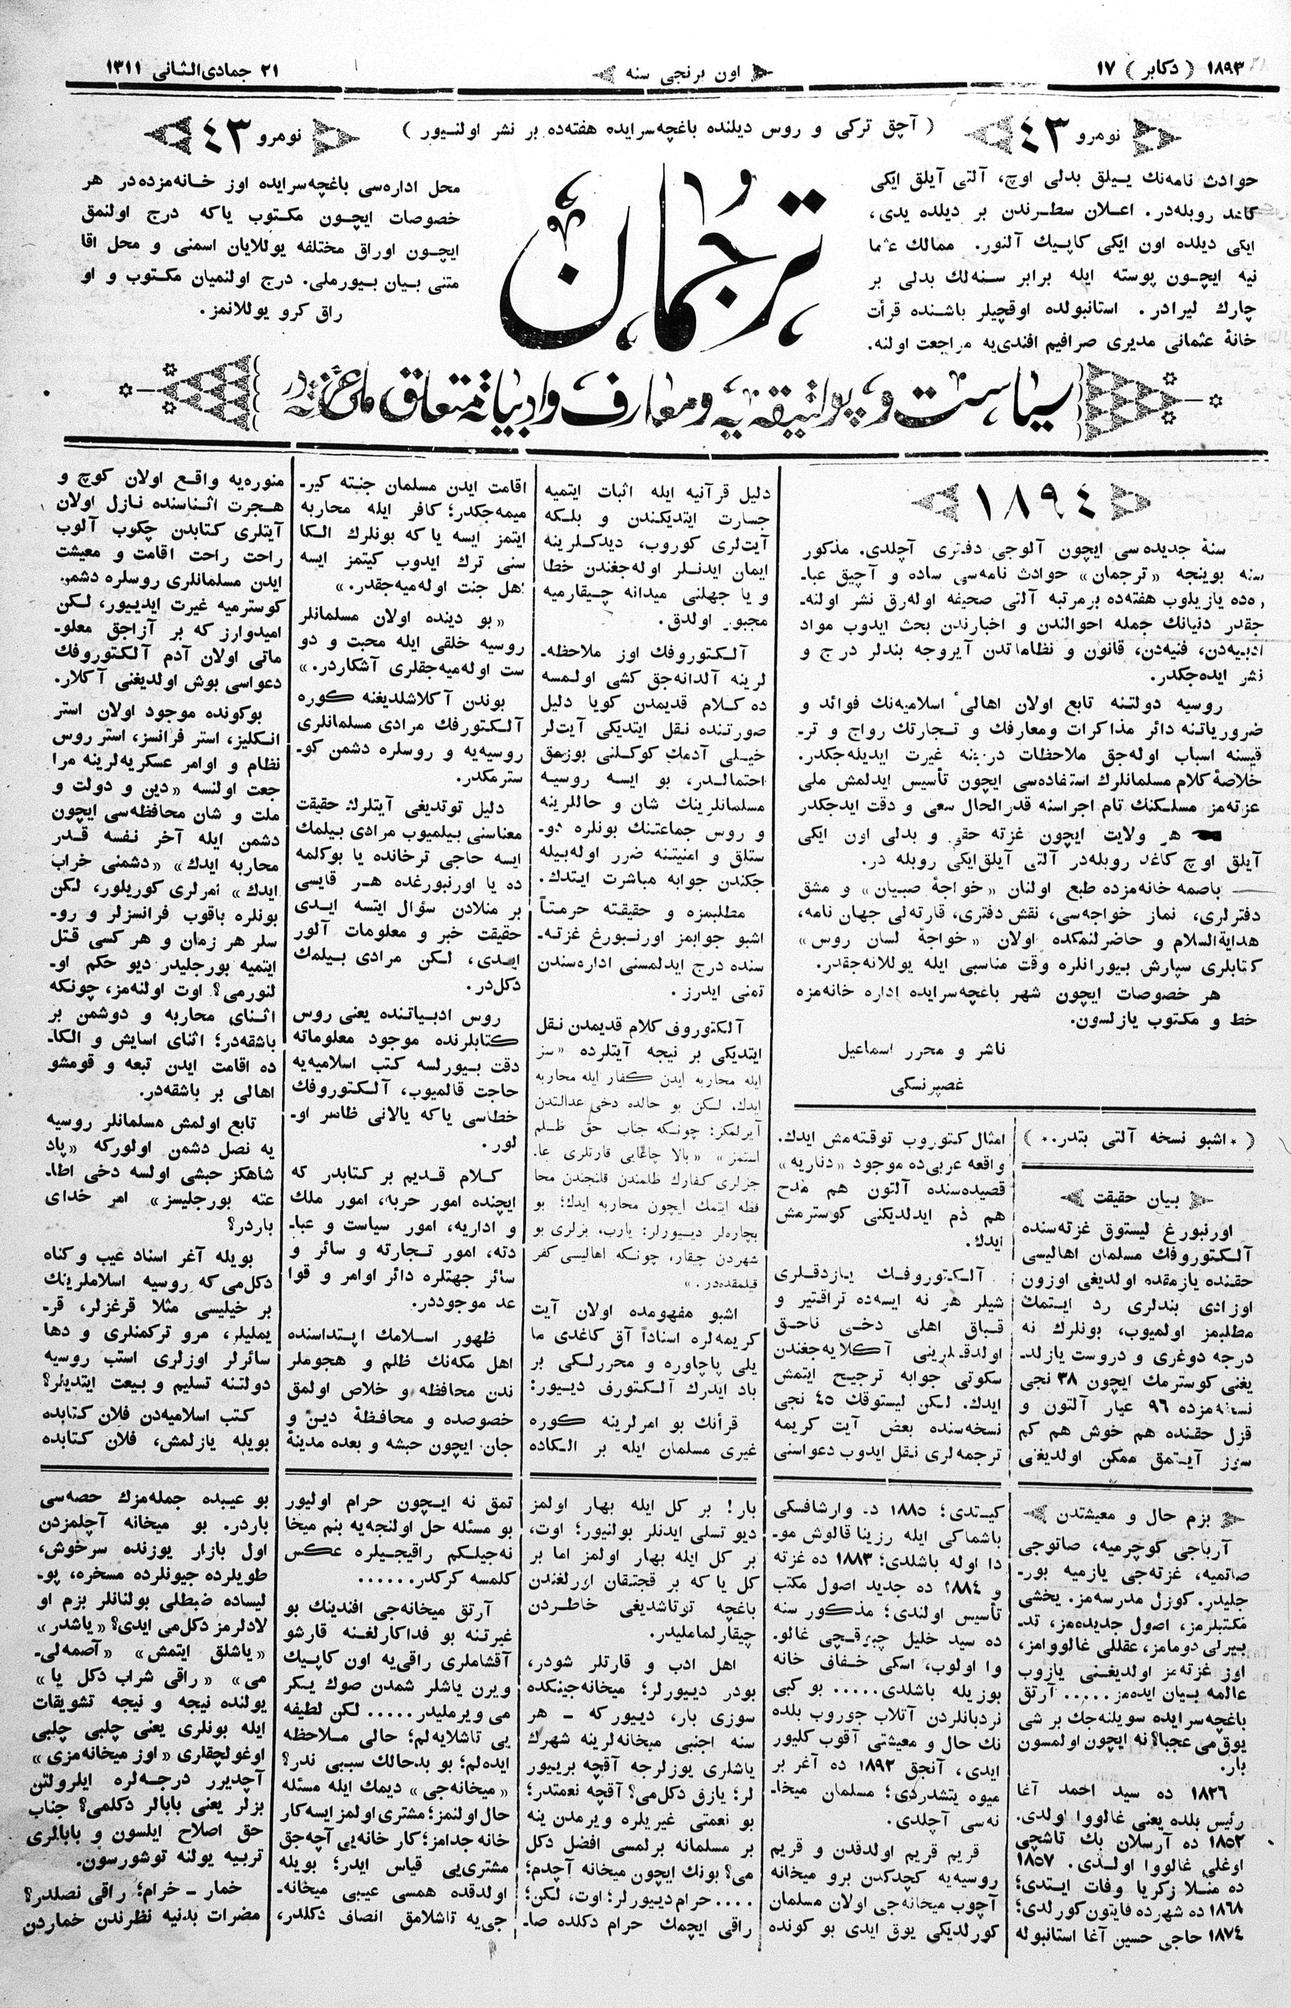 ١٨٩٣ ( دكابر ) ١٧
اون برنجى سنه
٢١ جمادى الثانى ١٣١١
نومرو ٤٣
( آچق تركى و روس ديلنده باغچه سرايده هفته ده بر نشر اولنيور )
نومرو ٤٣
حوادث نامه نك ييلق بدلى اوچ، آلتى آيلق ايكى
كاغد روبله در. اعلان سطرندن بر ديلده يدى،
ايكى ديلده اون ايكى كاپيك آلنور. ممالك عثما
نيه ايچون پوسته ايله برابر سنه لك بدلى بر
چارك ليرادر. استانبولده اوقچيلر باشنده قرأت
خانهٔ عثمانى مديرى صرافيم افندى يه مراجعت اولنه.
ترجمان
محل اداره سى باغچه سرايده اوز خانه مزده در هر
خصوصات ايچون مكتوب ياكه درج اولنمق
ايچون اوراق مختلفه يوللايان اسمنى و محل اقا
متنى بيان بيورملى. درج اولنميان مكتوب و او
راق كرو يوللانمز.
سياست و پوليتيقه يه و معارف و ادبياته متعلق ملى غزته در
١٨٩٤
سنهٔ جديده سى ايچون آلوجى دفترى آچلدى. مذكور
سنه بوينجه «ترجمان» حوادث نامه سى ساده و آچيق عبا-
ره ده يازيلوب هفته ده برمرتبه آلتى صحيفه اوله رق نشر اولنه-
جقدر دنيانك جمله احوالندن و اخبارندن بحث ايدوب مواد
ادبيه دن، فنيه دن، قانون و نظاماتدن آيروجه بندلر درج و
نشر ايده جكدر.
روسيه دولتنه تابع اولان اهالىٔ اسلاميه نك فوائد و
ضرورياتنه دائر مذاكرات ومعارفك و تجارتك رواج و تر-
قيسنه اسباب اوله جق ملاحظات درجنه غيرت ايديله جكدر.
خلاصهٔ كلام مسلمانلرك استفاده سى ايچون تأسيس ايدلمش ملى
غزته مز مسلكنك تام اجراسنه قدر الحال سعى و دقت ايدجكدر
هر ولايت ايچون غزته حقى و بدلى اون ايكى
آيلق اوچ كاغد روبله در آلتى آيلق ايكى روبله در.
— باصمه خانه مزده طبع اولنان «خواجهٔ صبيان» و مشق
دفترلرى، نماز خواجه سى، نقش دفترى، قارته لى جهان نامه،
هداية السلام و حاضرلنمكده اولان «خواجهٔ لسان روس»
كتابلرى سپارش بيورانلره وقت مناسبى ايله يوللانه جقدر.
هر خصوصات ايچون شهر باغچه سرايده اداره خانه مزه
خط و مكتوب يازلسون.
ناشر و محرر اسماعيل
غصپرنسكى
( • اشبو نسخه آلتى بتدر. • )
بيان حقيقت
اورنبورغ ليستوق غزته سنده
آلكتوروفك مسلمان اهاليسى
حقنده يازمقده اولديغى اوزون
اوزادى بندلرى رد ايتمك
مطلبمز اولميوب، بونلرك نه
درجه دوغرى و دروست يازلد-
يغنى كوسترمك ايچون ٣٨ نجى
نسخه مزده ٩٦ عيار آلتون و
قزل حقنده هم خوش هم كم
سوز آيتمق ممكن اولديغى
امثال كتوروب توقته مش ايدك.
واقعه عربى ده موجود «دناريه»
قصيده سنده آلتون هم مدح
هم ذم ايدلديكنى كوسترمش
ايدك.
آلكتوروفك يازدقلرى
شيلر هر نه ايسه ده تراقتير و
قباق اهلى دخى ناحق
اولدقلرينى آكلايه جغندن
سكوتى جوابه ترجيح ايتمش
ايدك. لكن ليستوقك ٤٥ نجى
نسخه سنده بعض آيت كريمه
ترجمه لرى نقل ايدوب دعواسنى
دليل قرآنيه ايله اثبات ايتميه
جسارت ايتديكندن و بلكه
آيت لرى كوروب، ديدكلرينه
ايمان ايدنلر اوله جغندن خطا
و يا جهلنى ميدانه چيقارميه
مجبور اولدق.
آلكتوروفك اوز ملاحظه-
لرينه آلدانه جق كشى اولمسه
ده كلام قديمدن كويا دليل
صورتنده نقل ايتديكى آيت لر
خيلى آدمك كوكلنى بوزمق
احتمالدر، بو ايسه روسيه
مسلمانلرينك شان و حاللرينه
و روس جماعتنك بونلره دو-
ستلق و امنيتنه ضرر اوله بيله
جكندن جوابه مباشرت ايتدك.
مطلبمزه و حقيقته حرمتاً
اشبو جوابمز اورنبورغ غزته-
سنده درج ايدلمسنى اداره سندن
تمنى ايدرز.
آلكتوروف كلام قديمدن نقل
ايتديكى بر نيچه آيتلرده «سز
ايله محاربه ايدن كفار ايله محاربه
ايدك، لكن بو حالده دخى عدالتدن
آيرلمكز: چونكه جناب حق ظلم
استمز» «بالا چاغابى قارتلرى عا-
جزلرى كفارك ظلمندن قلنجندن محا
فظه ايتمك ايچون محاربه ايدك: بو
بچاره لر ديبورلر: يارب، بزلرى بو
شهردن چيقار، چونكه اهاليسى كفر
قيلمقده در.»
اشبو مفهومده اولان آيت
كريمه لره اسناداً آق كاغدى ما
يلى پاچاوره و محررلكى بر
باد ايدرك آلكتورف دييور:
قرآنك بو امرلرينه كوره
غيرى مسلمان ايله بر الكاده
اقامت ايدن مسلمان جنته كير-
ميمه جكدر؛ كافر ايله محاربه
ايتمز ايسه ياكه بونلرك الكا
سنى ترك ايدوب كيتمز ايسه
اهل جنت اوله ميه جقدر.»
«بو دينده اولان مسلمانلر
روسيه خلقى ايله محبت و دو
ست اوله ميه جقلرى آشكاردر.»
بوندن آكلاشلديغنه كوره
آلكتورفك مرادى مسلمانلرى
روسيه يه و روسلره دشمن كو-
سترمكدر.
دليل توتديغى آيتلرك حقيقت
معناسنى بيلميوب مرادى بيلمك
ايسه حاجى ترخانده يا بوكلمه
ده يا اورنبورغده هر قايسى
بر منلادن سؤال ايتسه ايدى
حقيقت خبر و معلومات آلور
ايدى، لكن مرادى بيلمك
دكل در.
روس ادبياتنده يعنى روس
كتابلرنده موجود معلوماته
دقت بيورلسه كتب اسلاميه يه
حاجت قالميوب، آلكتوروفك
خطاسى ياكه يالانى ظاهر او-
لور.
كلام قديم بر كتابدر كه
ايچنده امور حربه، امور ملك
و اداريه، امور سياست و عبا-
دته، امور تجارته و سائر و
سائر جهتلره دائر اوامر و قوا
عد موجوددر.
ظهور اسلامك اپتداسنده
اهل مكه نك ظلم و هجوملر
ندن محافظه و خلاص اولمق
خصوصده و محافظهٔ دين و
جان ايچون حبشه و بعده مدينهٔ
منوره يه واقع اولان كوچ و
هجرت اثناسنده نازل اولان
آيتلرى كتابدن چكوب آلوب
راحت راحت اقامت و معيشت
ايدن مسلمانلرى روسلره دشمن
كوسترميه غيرت ايدييور، لكن
اميدوارز كه بر آزاجق معلو-
ماتى اولان آدم آلكتوروفك
دعواسى بوش اولديغنى آكلار.
بوكونده موجود اولان استر
انكليز، استر فرانسز، استر روس
نظام و اوامر عسكريه لرينه مرا
جعت اولنسه «دين و دولت و
ملت و شان محافظه سى ايچون
دشمن ايله آخر نفسه قدر
محاربه ايدك» «دشمنى خراب
ايدك» امرلرى كوريلور، لكن
بونلره باقوب فرانسزلر و رو-
سلر هر زمان و هر كسى قتل
ايتميه بورجليدر ديو حكم او-
لنورمى؟ اوت اولنه مز، چونكه
اثناى محاربه و دوشمن بر
باشقه در؛ اثناى اسايش و الكا-
ده اقامت ايدن تبعه و قومشو
اهالى بر باشقه در.
تابع اولمش مسلمانلر روسيه
يه نصل دشمن اولوركه «پاد
شاهكز حبشى اولسه دخى اطا-
عته بورجليسز» امر خداى
باردر؟
بويله آغر اسناد عيب و كناه
دكل مى كه روسيه اسلاملرينك
بر خيليسى مثلا قرغزلر، قر-
يمليلر، مرو تركمنلرى و دها
سائرلر اوزلرى استب روسيه
دولتنه تسليم و بيعت ايتديلر؟
كتب اسلاميه دن فلان كتابده
بويله يازلمش، فلان كتابده
بزم حال و معيشتدن
آرباجى كوچرميه، صاتوجى
صاتميه، غزته جى يازميه بور-
جليدر. كوزل مدرسه مز. يخشى
مكتبلرمز، اصول جديده مز، تد-
بيرلى دومامز، عقللى غالووامز،
اوز غزته مز اولديغنى يازوب
عالمه بيان ايده مز...... آرتق
باغچه سرايده سويلنه جك بر شى
يوق مى عجبا؟ نه ايچون اولمسون
بار.
١٨٢٦ ده سيد احمد آغا
رئيس بلده يعنى غالووا اولدى.
١٨٥٢ ده آرسلان بك تاشچى
اوغلى غالووا اولدى. ١٨٥٧
ده منلا زكريا وفات ايتدى؛
١٨٦٨ ده شهرده فايتون كورلدى؛
١٨٧٤ حاجى حسين آغا استانبوله
كيتدى؛ ١٨٨٥ د. وارشافسكى
باشماكى ايله رزينا قالوش مو-
دا اوله باشلدى؛ ١٨٨٣ ده غزته
و ١٨٨٤ ده جديد اصول مكتب
تأسيس اولندى؛ مذكور سنه
ده سيد خليل چبرقچى غالو-
وا اولوب، اسكى خفاف خانه
بوزيله باشلدى..... بو كبى
نردبانلردن آتلاب جوروب بلده
نك حال و معيشتى آقوب كليور
ايدى، آنجق ١٨٩٢ ده آغر بر
ميوه يتشدردى؛ مسلمان ميخا-
نه سى آچلدى.
قريم قريم اولدقدن و قريم
روسيه يه كچدكدن برو ميخانه
آچوب ميخانه جى اولان مسلمان
كورلديكى يوق ايدى بو كونده
بار! بر كل ايله بهار اولمز
ديو تسلى ايدنلر بولنيور؛ اوت،
بر كل ايله بهار اولمز اما بر
كل ياكه بر قجتقان اورلغندن
باغچه توتاشديغى خاطردن
چيقارلماملیدر.
اهل ادب و قارتلر شودر،
بودر دييورلر؛ ميخانه جينكده
سوزى بار، دييوركه — هر
سنه اجنبى ميخانه لرينه شهرك
ياشلرى يوزلرجه آقچه بريبور
لر؛ يازق دكل مى؟ آقچه نعمتدر؛
بو نعمتى غيريلره ويرمدن ينه
بر مسلمانه برلمسى افضل دكل
مى؟ بونك ايچون ميخانه آچدم؛
.... حرام دييورلر؛ اوت، لكن؛
راقى ايچمك حرام دكلده صا-
تمق نه ايچون حرام اوليور
بو مسئله حل اولنجه يه بنم ميخا
نه جيلكم راقيجيلره عكس
كلمسه كركدر......
آرتق ميخانه جى افندينك بو
غيرتنه بو فداكارلغنه قارشو
آقشاملرى راقى يه اون كاپيك
ويرن ياشلر شمدن صوك يكر
مى ويرمليدر..... لكن لطيفه
يى تاشلايه لم؛ حالى ملاحظه
ايده لم؛ بو بدحالك سببى ندر؟
«ميخانه جى» ديمك ايله مسئله
حال اولنمز؛ مشترى اولمز ايسه كار
خانه جدامز؛ كار خانه يى آچه جق
مشترى يى قياس ايدر؛ بويله
اولدقده همسى عيبى ميخانه-
جى يه تاشلامق انصاف دكلدر،
بو عيبده جمله مزك حصه سى
باردر. بو ميخانه آچلمزدن
اول بازار يوزنده سرخوش،
طويلرده جيونلرده مسخره، پو-
ليساده ضبطلى بولنانلر بزم او
لادلرمز دكل مى ايدى؟ «ياشدر»
«ياشلق ايتمش» «آصمه لى-
مى» «راقى شراب دكل يا»
يولنده نيجه و نيجه تشويقات
ايله بونلرى يعنى چلبى چلبى
اوغولچقلرى «اوز ميخانه مزى»
آچديرر درجه لره ايلرولتن
بزلر يعنى بابالر دكلمى؟ جناب
حق اصلاح ايلسون و بابالرى
تربيه يولنه توشورسون.
خمار — خرام؛ راقى نصلدر؟
مضرات بدنيه نظرندن خماردن